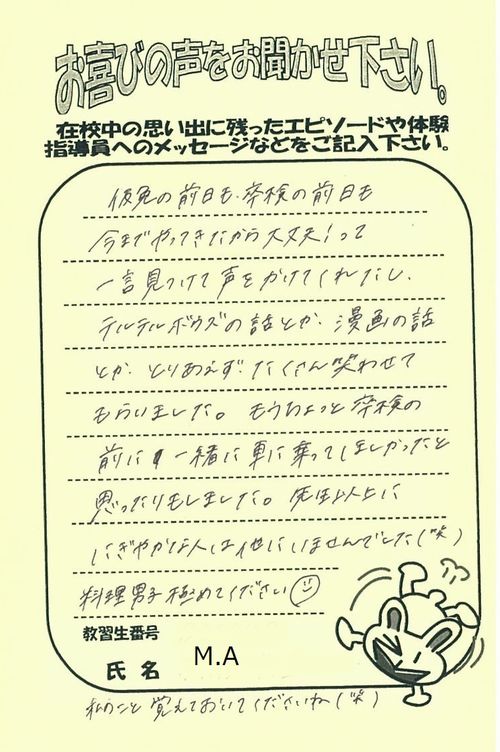 お喜びの声をお聞かせ下さい。
在校中の思い出に残ったエピソードや体験
指導員へのメッセージなどをご記入下さい。
仮免の前日も、卒検の前日も
今までやってきたから大丈夫!って
一言見つけて声をかけてくれたし、
テルテルボウズの話とか、漫画の話
とか、とりあえず、たくさん笑わせて
もらいました。もうちょっと卒検の
前に一緒に車に乗ってほしかったと
思ったりもしました。先生以上に
にぎやかな人は他にいませんでした(笑)
料理男子極めてください
教習生番号
氏名 M.A
私のこと覚えておいてくださいね(笑)